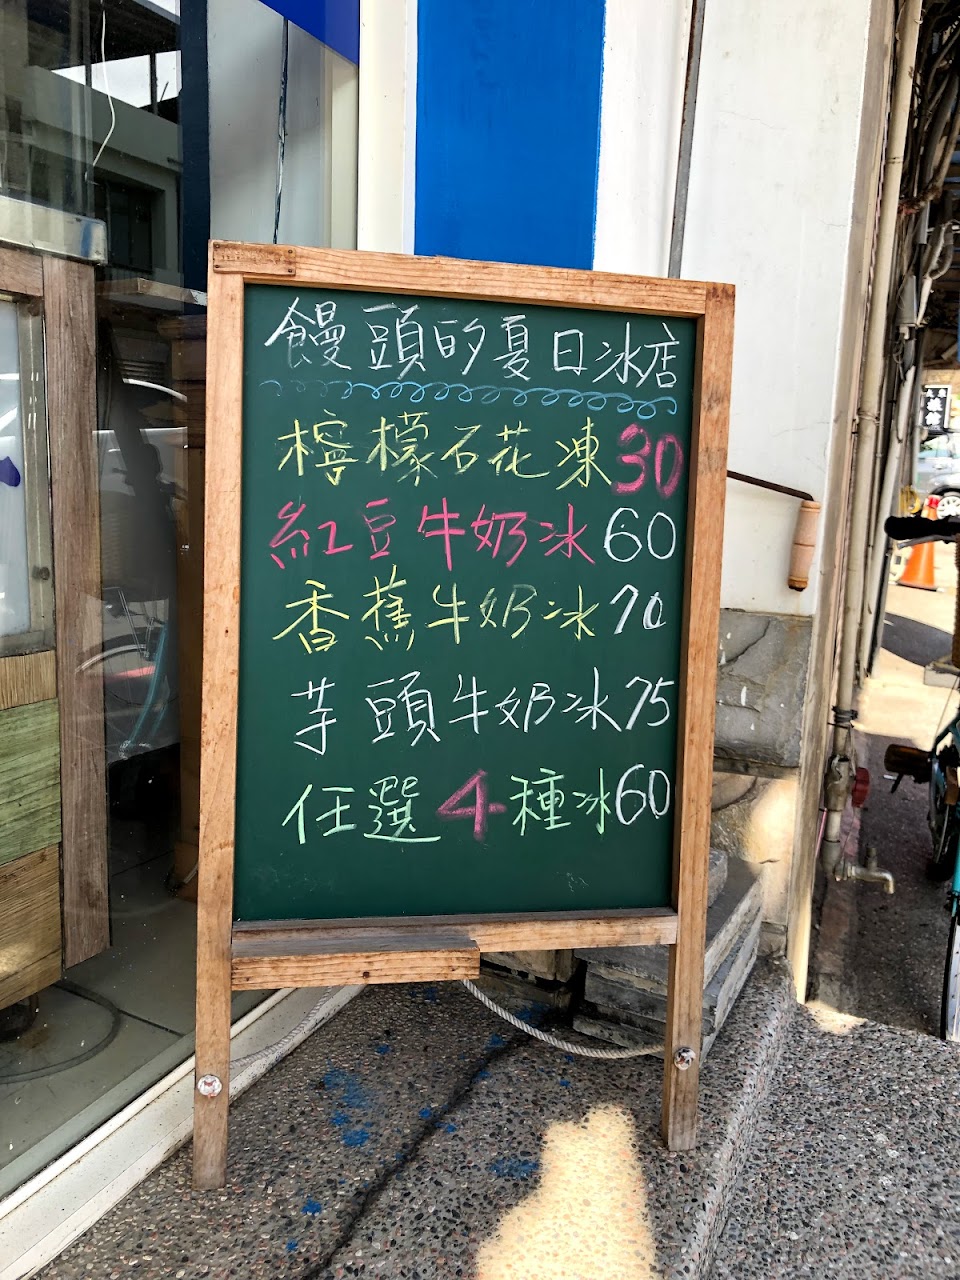 饅頭的夏日冰店
檸檬石花凍30
紅豆牛奶冰60
香蕉牛奶冰70
芋頭牛奶冰75
任選4種冰60